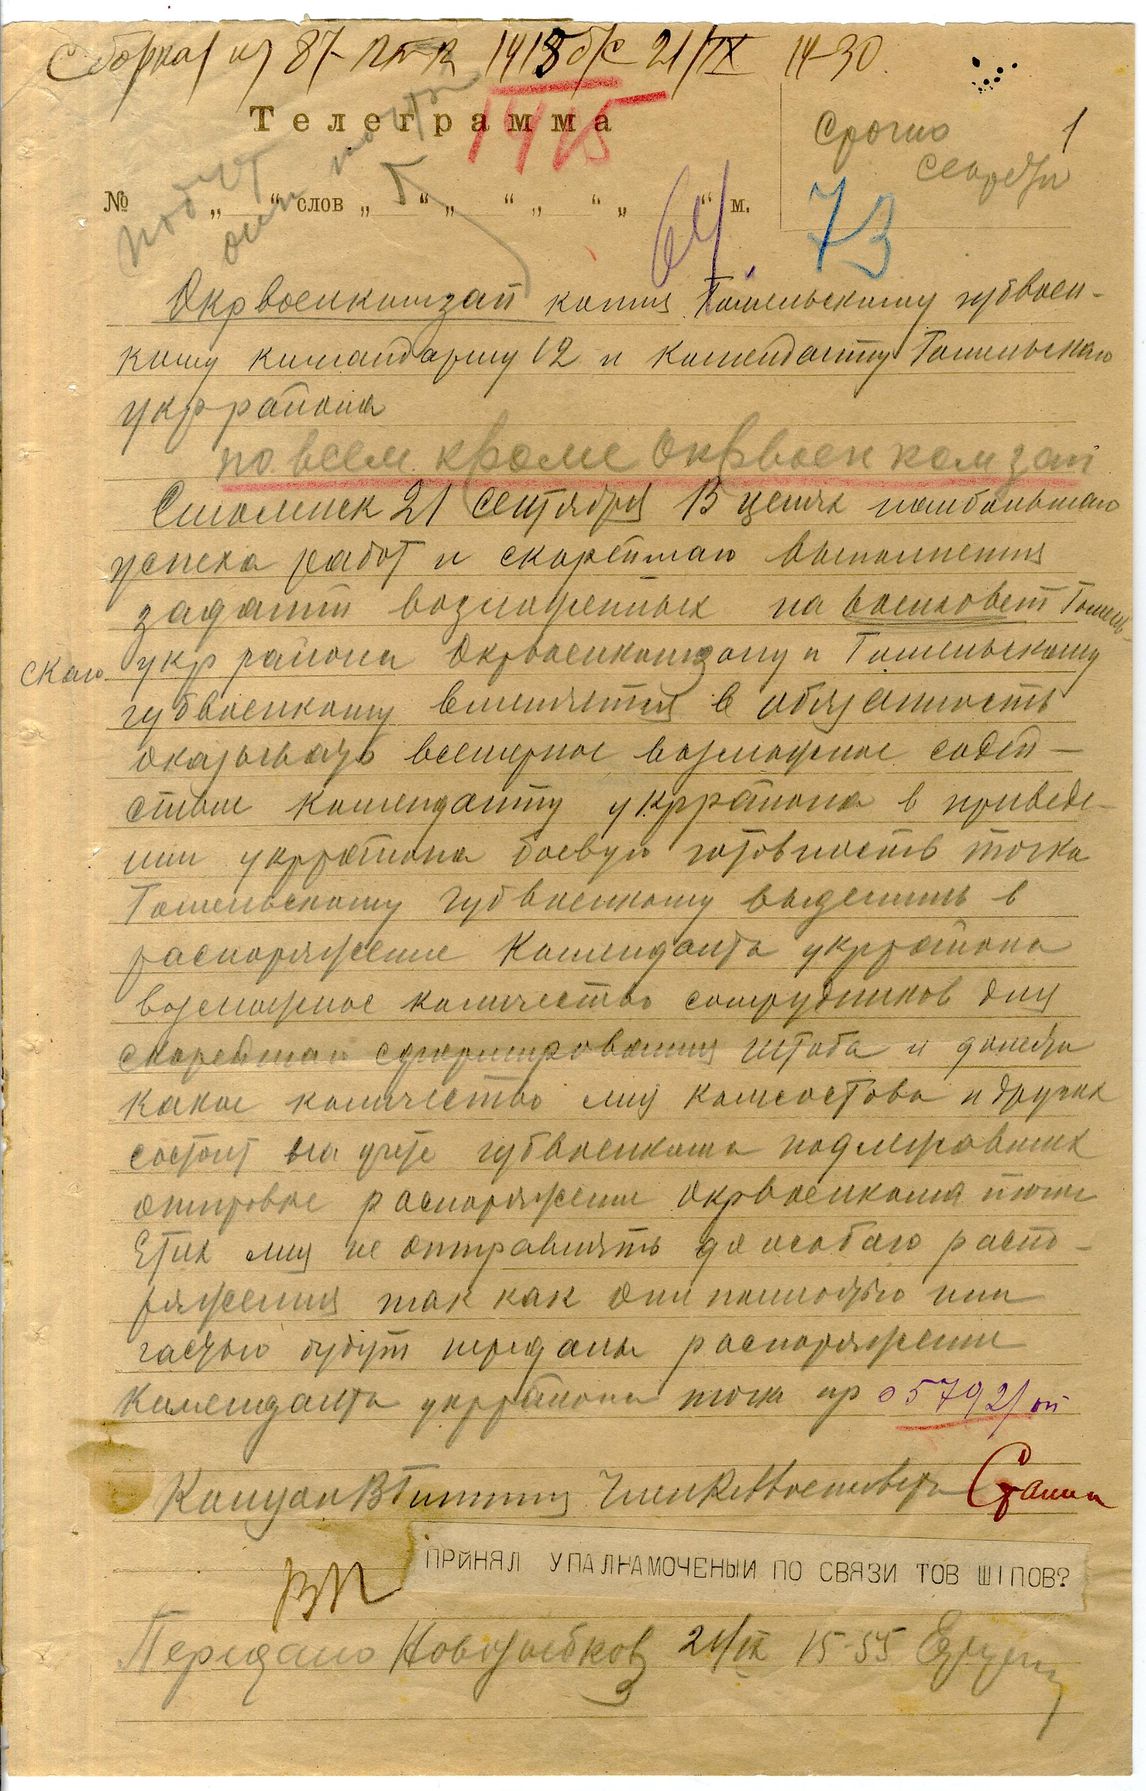 1415 б/с 21/IX 14-30
Телеграмма
1415
Срочно 1
секретн
№ „ “ слов „ “ „ “ „ “ „ “ м.
64.
73
Окрвоенкомзап копия Гомельскому губвоен-
кому командарму 12 и коменданту Гомельскаго
укррайона
по всем кроме Окрвоенкомзап
Смоленск 21 сентября В целях наибольшаго
успеха работ и скорейшаго выполнения
задач возложенных на Гомель-
скаго укр района Окрвоенкомзапу и Гомельскому
губвоенкому вменяется в обязанность
оказывать всемерное возможное содей-
ствие коменданту укррайона в приведе-
нии укррайона боевую готовность точка
Гомельскому губвоенкому выделить в
распоряжение коменданта укррайона
возможное количество сотрудников для
скорейшаго сформирования штаба и донести
какое количество лиц комсостава и других
состоит на учете губвоенкома подлежавших
отправке распоряжение окрвоенкома точка
Етих лиц не отправлять до особаго распо-
ряжения так как они полностью или
частью будут переданы распоряжение
коменданта укррайона точка нр 05792/оп
Сталин
ПРИНЯЛ УПАЛНАМОЧЕНЫИ ПО СВЯЗИ ТОВ ШІПОВ?
Передано Новозыбков 21/IX 15-55